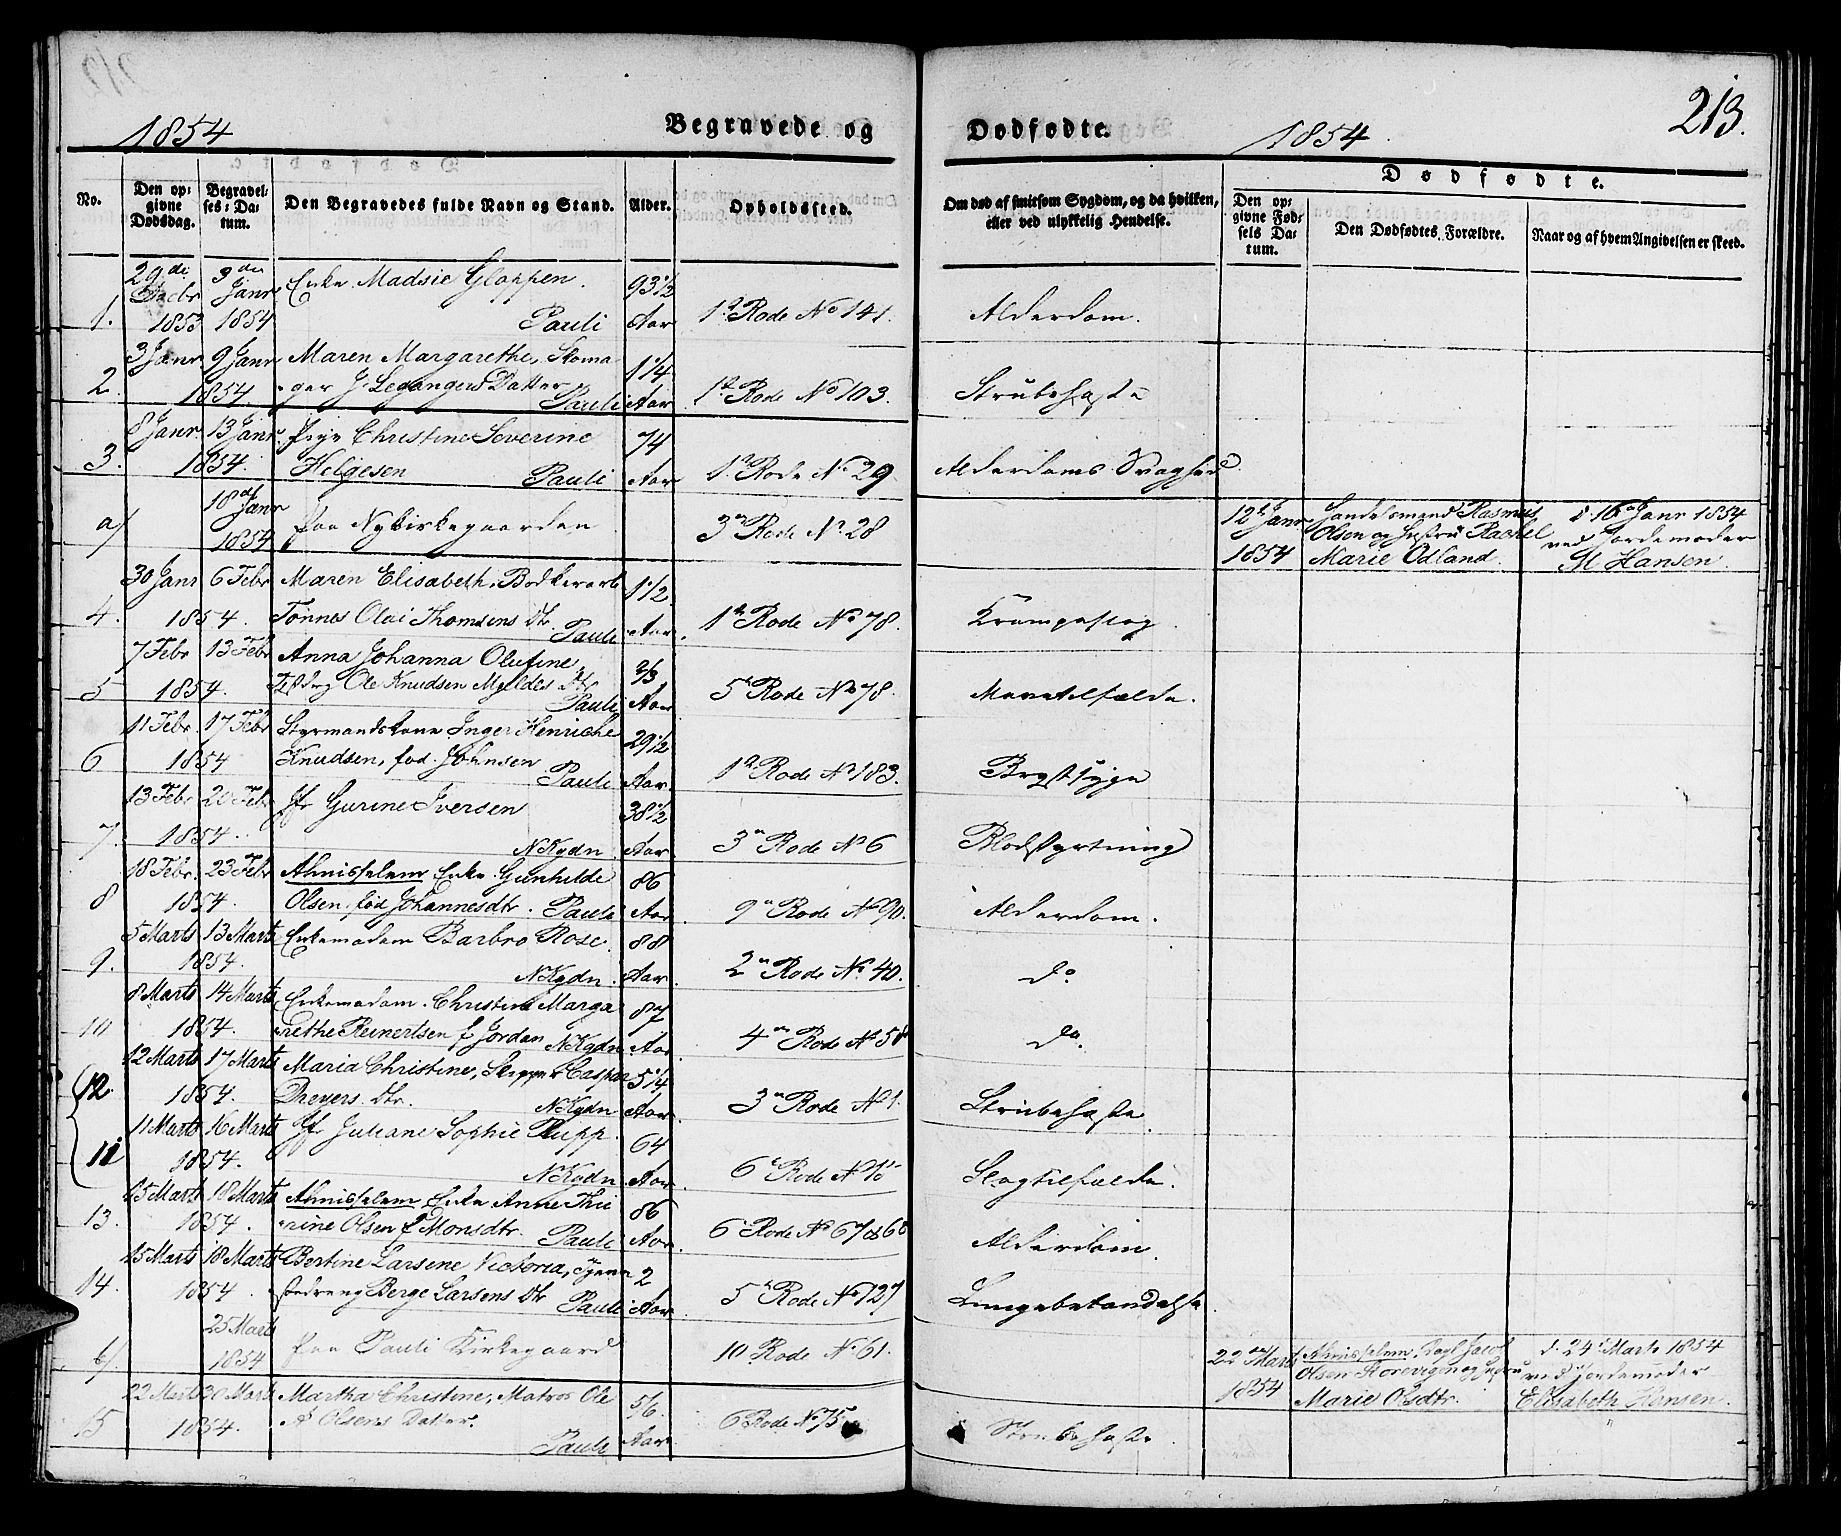 1854 Begravede og Dødfødte. 1854. 213.
No. Den opgivne Dødsdag. Begravelses-Datum. Den Begravedes fulde Navn og Stand. Alder. Opholdssted. Om død af smitsom Sygdom, og da hvilken, eller ved ulykkelig Hendelse. Dødfødte. Den opgivne Fødsels Datum. Den Dødfødtes Forældre. Naar og af hvem Angivelsen er skeed.
29de 3die Enke Madsie Gloppen. 93 1/2
Decbr Janr
1. 1853 1854 Pauli Aar 1ste Rode No 141. Alderdom.
3 Janr 9 Janr Maren Margarethe, Skoma 1 1/4
2. 1854. ger J. Legangers Datter Pauli Aar 1ste Rode No 103. Strubehoste
8 Janr. 13 Janr. Pige Christine Severine 74
3. 1854. Helgesen Pauli Aar 1ste Rode No 29 Alderdoms Svaghed
18de Janr
a/ 1854 paa Nykirkegaarden 3die Rode No 28
12te Janr Handelsmand Rasmus d. 16de Janr 1854
Olsen og Hustru Rachel ved Jordemoder
1854 Marie Odland. M Hansen.
30 Janr 6 Febr Maren Elisabeth, Bødkerarb 1 1/2
4. 1854. Tønnes Olai Thomsens Dtr. Pauli Aar. 1ste Rode No 78. Krampeslag.
7 Febr 13 Febr Anna Johanna Olufine, 2/3
5 1854. Ole Knudsen Myldes Dtr Pauli Aar 5te Rode No 78. Mavetilfælde.
11 Febr. 17 Febr Styrmandskone Inger Henriche 29 1/2
6 1854 Knudsen, fød. Johnsen Pauli Aar. 1ste Rode No 183. Brystsyge
13 Febr 20 Febr Jfr Gurine Iversen 38 1/2
7. 1854. NKgdn. Aar. 3die Rode No 6 Blodstyrtning
18 Febr. 23 Febr Almisselem Enke Gunhilde 86
8 1854. Olsen, fød Johannesdtr. Pauli Aar. 9de Rode No 90. Alderdom.
5 Marts 13 Marts Enkemadam Barbro Rose. 88
9. 1854. NKgdn. Aar. 2den Rode No. 40. do
8 Marts 14 Marts Enkemadam. Christine Marga 87
10 1854. rethe Reinertsen f Jordan NKgdn Aar. 4de Rode No 58 do.
12 Marts 17 Marts Maria Christine, Skipper Caspar 5 1/4
12. 1854. Dreyers. Dtr. NKgdn Aar. 3die Rode No 1. Strubehoste.
11 Marts 16 Marts Jfr Juliane Sophie Rupp. 64
11 1854. NKgdn Aar. 6te Rode Slagtilfælde.
15 Marts 18 Marts Almisselem Enke Anne Thu 86
13. 1854. rine Olsen f Monsdtr. Pauli Aar. 6 Rode No 67 & 68 Alderdom.
15 Marts 18 Marts Bertine Larsine Victoria, 2
14. 1854. Berge Larsens Dtr Pauli Aar. 5te Rode No 127 Lungebetændelse.
25 Marts
b/ 1854 paa Pauli Kirkegaard 10 Rode No 61.
22 Marts Almisselem Dagl Jacob d. 24de Marts 1854
Olsen Storevigen og Hustru ved Jordemoder
1854 Marie Olsdtr. Elisabeth Hansen.
22 Marts Marts Martha Christine, Matros Ole 5/6.
15 1854. A Olsens Datter. Pauli Aar. 6 Rode No 75 Strubehoste.